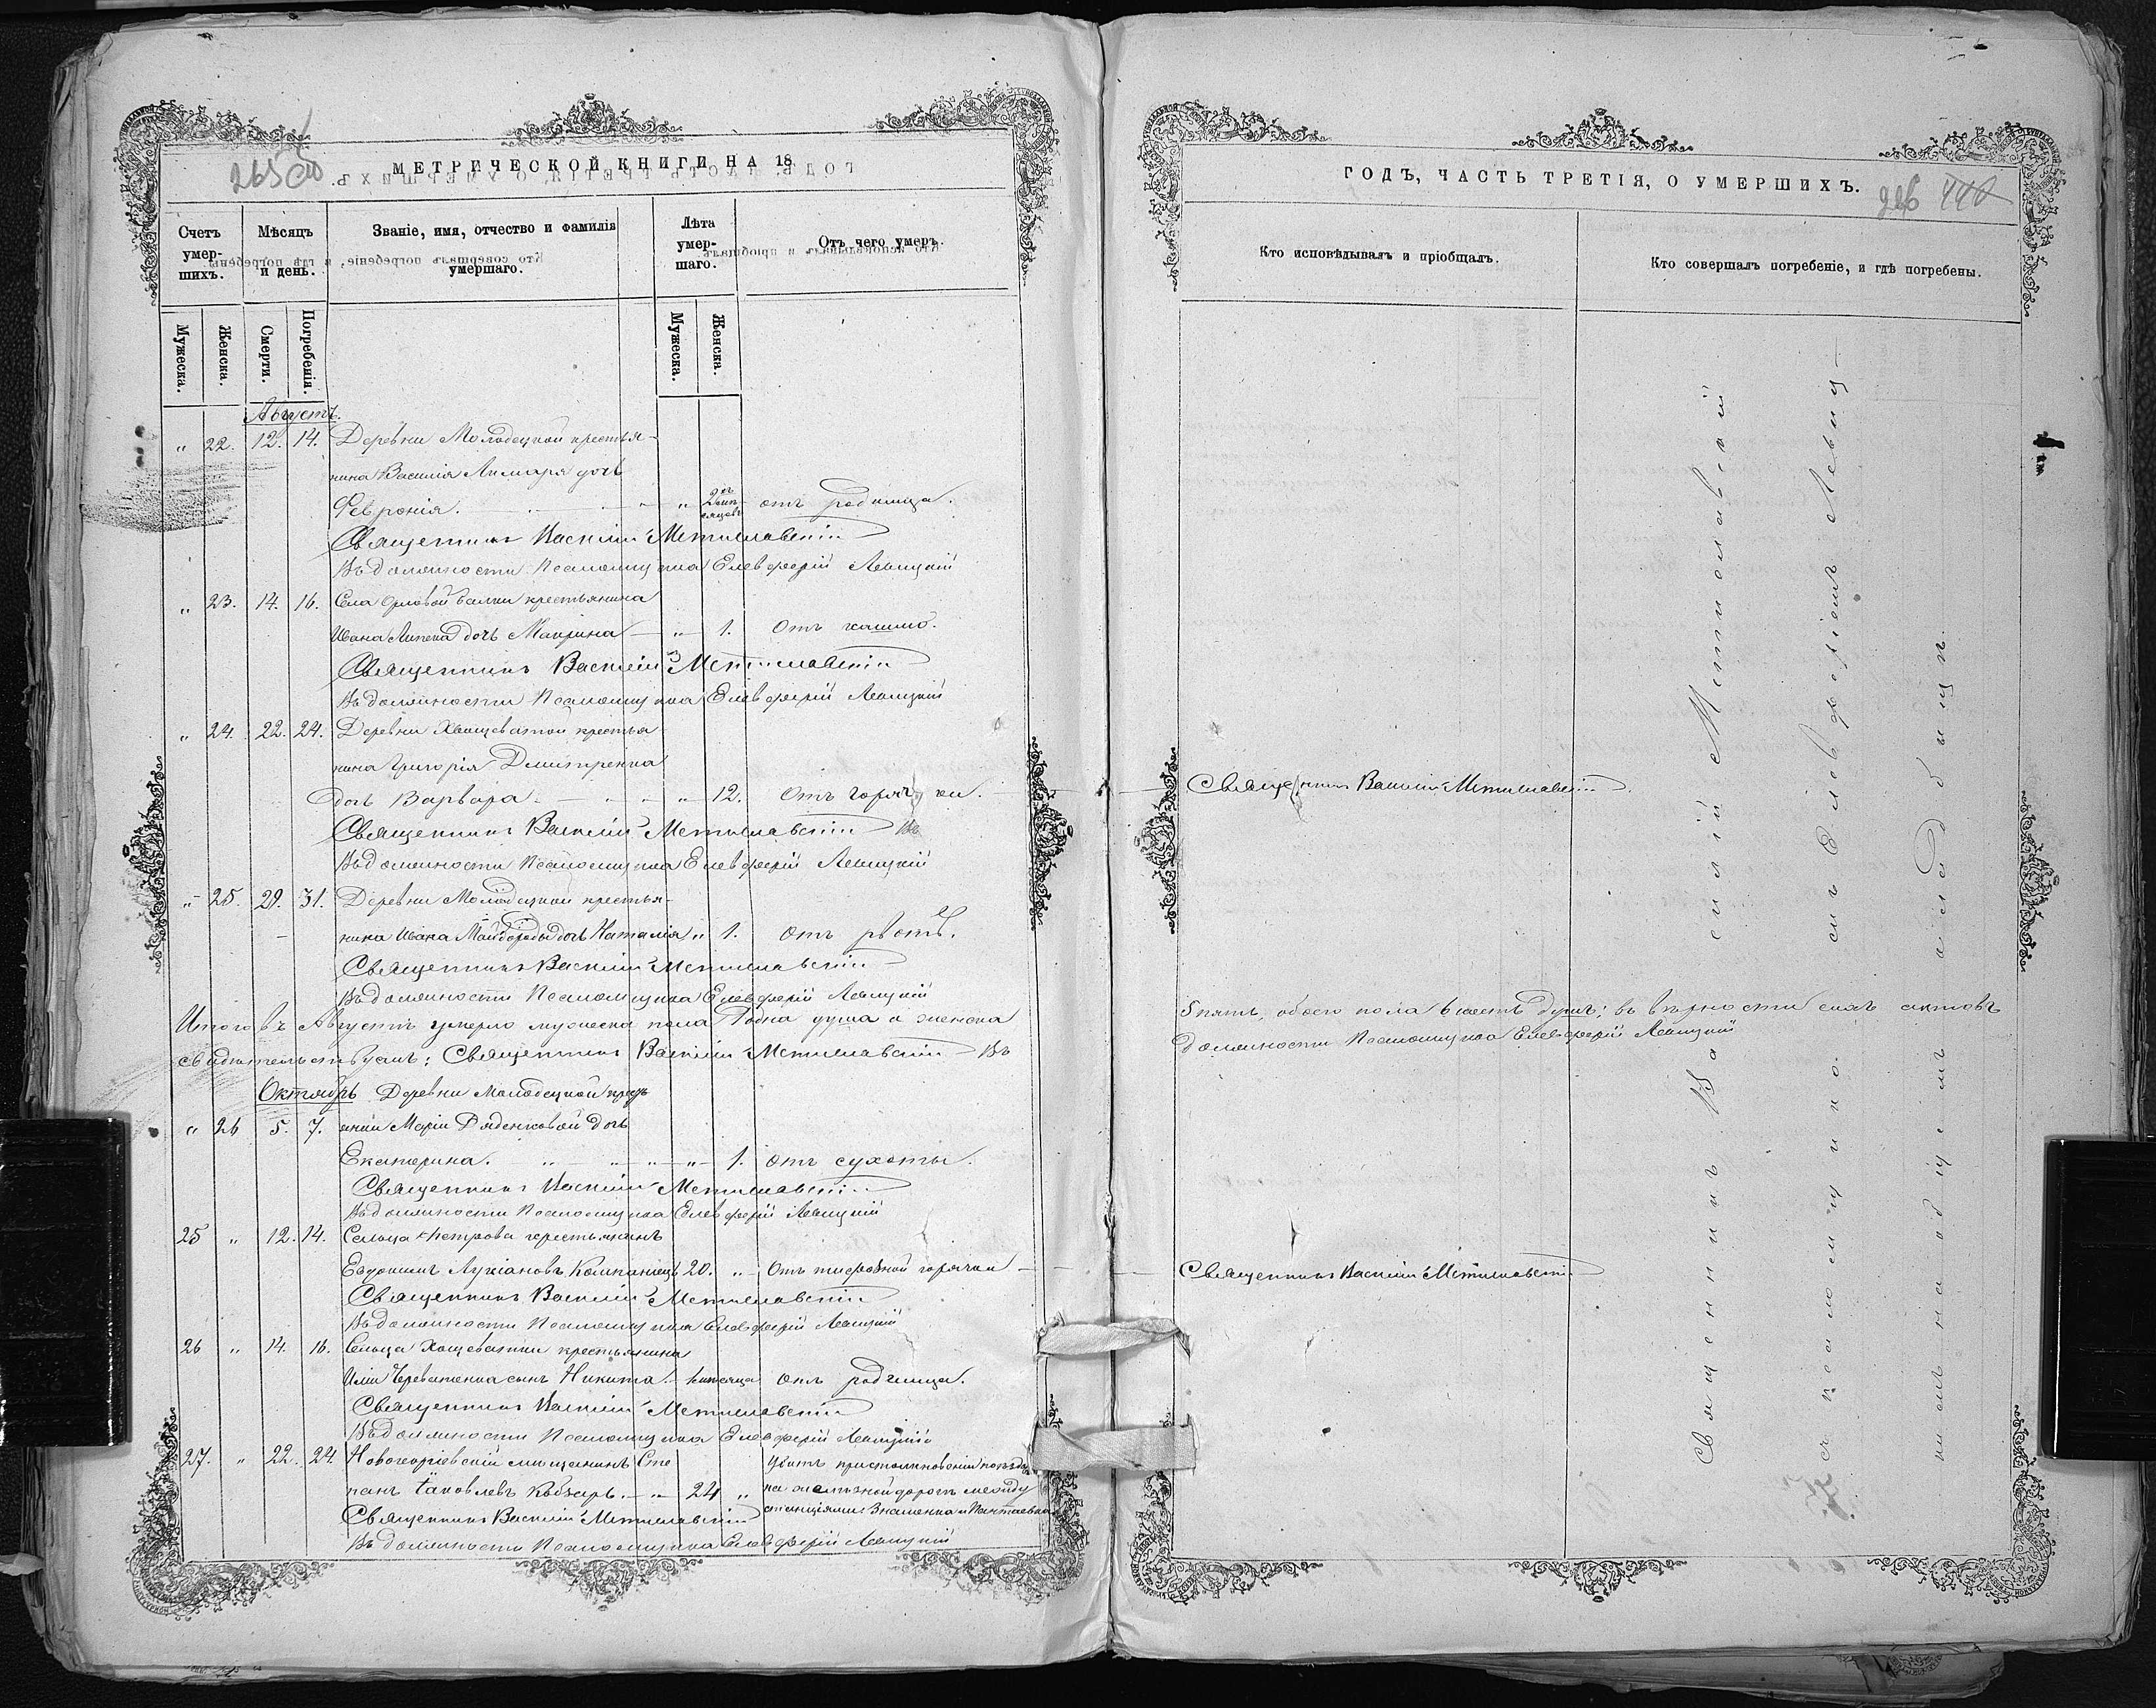 МЕТРИЧЕСКОЙ КНИГИ НА 18
265
Счетъ умер-шихъ.
Мѣсяцъ и день.
Званіе, имя, отчество и фамилія умершаго.
Лѣта умер-шаго.
Отъ чего умеръ.
Мужеска.
Женска.
Смерти.
Погребенія.
Мужеска.
Женска.
Августъ.
„ 22. 12. 14. Деревни Молодецкой крестья-
нина Василія дочь
Февронія. „ 2 отъ родимца.
Священникъ Василій Мстиславскій
Въ должности Псаломщика Елевферій Левицкій
„ 23. 14. 16. Села Орловой балки крестьянина
Ивана Липека дочь Макрина „ 1. Отъ кашлю.
Священникъ Василій Мстиславскій
Въ должности Псаломщика Елевферій Левицкій
„ 24. 22. 24. Деревни Хващеватой крестья
нина Григорія Дмитренка
дочь Варвара. „ 12. Отъ горячки.
Священникъ Василій Мстиславскій Въ
Въ должности Псаломщика Елевферій Левицкій
„ 25. 29. 31. Деревни Молодецкой крестья-
нина Ивана Майбороды дочь Наталія „ 1. Отъ рвоты.
Священникъ Василій Мстиславскій
Въ должности Псаломщика Елевферій Левицкій
Итого въ Августѣ умерло мужеска пола 1 одна душа а женска
свидѣтельствуемъ: Священникъ Василій Мстиславскій Въ
Октябрь Деревни Молодецкой
„ 26 5. 7. Маріи Дяденковой дочь
Екатерина. „ 1. отъ сухоты.
Священникъ Василій Мстиславскій
Въ должности Псаломщика Елевферій Левицкій
25 „ 12. 14. Сельца Петрова крестьянинъ
Евдокимъ Лукіановъ Компаніецъ 20. „ Отъ тифозной горячки
Священникъ Василій Мстиславскій
Въ должности Псаломщика Елевферій Левицкій
26 „ 14. 16. Сельца Хощеватии крестьянина
Иліи Череватенка сынъ Никита. месяца Отъ родимца.
Священникъ Василій Мстиславскій
Въ должности Псаломщика Елевферій Левицкій
27. „ 22. 24. Новогеоргіевскій мещанинъ Сте Убитъ пристолкновеніи поѣзда
панъ Іаковлевъ Кобзарь. „ 24 „ на желѣзной дорогѣ между
Священникъ Василій Мстиславскій станціями: Знаменка и Пантаевка
Въ должности Псаломщика Елевферій Левицкій
ГОДЪ, ЧАСТЬ ТРЕТІЯ, О УМЕРШИХЪ.
Кто исповѣдывалъ и пріобщалъ.
Кто совершалъ погребеніе, и гдѣ погребены.
Священникъ Василій Мстиславскій.
5 пять, обоего пола 6 шесть душъ; въ вѣрности сихъ актовъ
должности Псаломщика Елевферій Левицкій
Священникъ Василій Мстиславскій
Священникъ Василій Мстиславскій
съ псаломщико. съ Елевферіемъ Левиц-
кимъ на общемъ кладбищѣ.